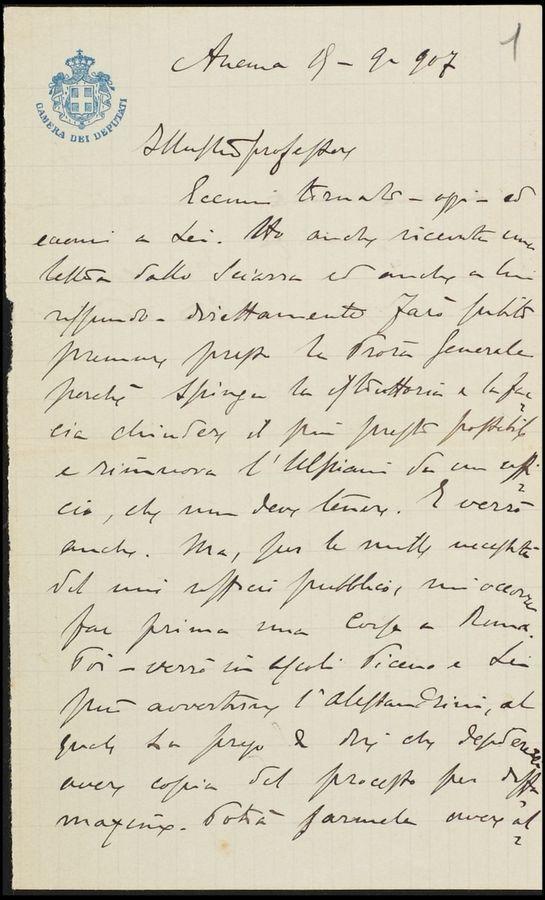 1
Ancona 19 - 9r 907
CAMERA DEI DEPUTATI
Illustre professore
Eccomi tornato - oggi - ed
eccomi a Lei. Ho anche ricevuta una
lettera dallo Sciarra ed anche a lui
rispondo - direttamente Farò subito
premure presso la Proc.a Generale
perchè spinga la istruttoria e la fac
cia chiudere il più presto possibile
e rimuova l'Ulpiani da un uffi
cio, che non deve tenere. E verrò
anche. Ma, per le molte necessità
del mio ufficio pubblico, mi occorre
far prima una corsa a Roma.
Poi - verrò in Ascoli Piceno e Lei
può avvertirne l'Alessandrini, al
quale La prego di dire che desidererei
avere copia del processo per diffa
mazione. Potrà farmela avere al